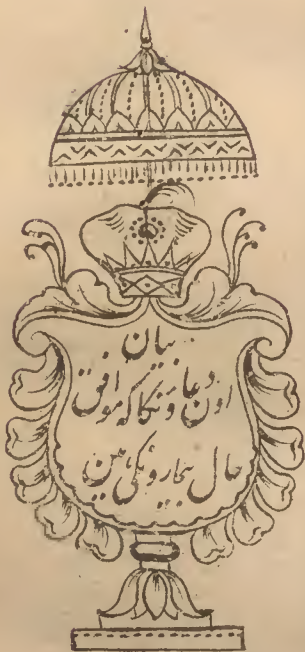 بیان
اون دعاونکا که موافق
حال بیمارونکی ہین